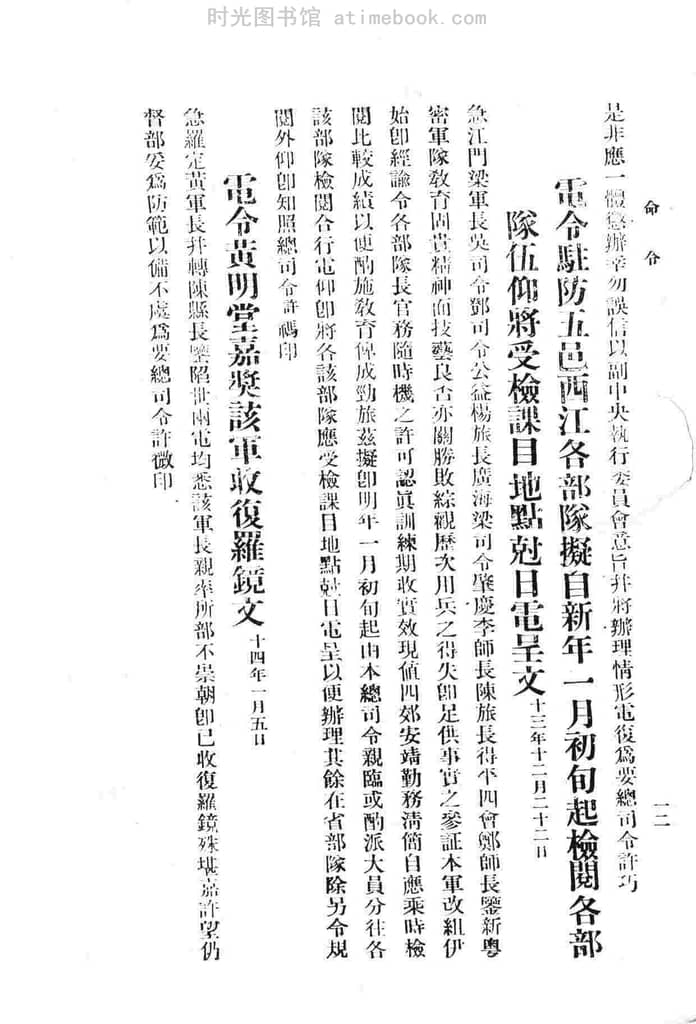 时光图书馆 atimebook.com
命令
一二
是非應一體懲辦幸勿誤信以副中央執行委員會意旨幷將辦理情形電復爲要總司令許巧
電令駐防五邑西江各部隊擬自新年一月初旬起檢閱各部
隊伍仰將受檢課目地點尅日電呈文十三年十二月二十二日
急江門梁軍長吳司令鄧司令公益楊旅長廣海梁司令肇慶李師長陳旅長得平四會鄭師長鑒新粵
密軍隊敎育固貴精神而技藝良否亦關勝敗綜觀歷次用兵之得失卽足供事實之參証本軍改組伊
始卽經諭令各部隊長官務隨時機之許可認眞訓練期收實效現値四郊安靖勤務淸簡自應乘時檢
閱比較成績以便酌施敎育俾成勁旅茲擬卽明年一月初旬起由本總司令親臨或酌派大員分往各
該部隊檢閱合行電仰卽將各該部隊應受檢課目地點尅日電呈以便辦理其餘在省部隊除另令規
閱外仰卽知照總司令許禡印
電令黃明堂嘉獎該軍收復羅鏡文十四年一月五日
急羅定黃軍長幷轉陳縣長鑒陷世兩電均悉該軍長親率所部不崇朝卽已收復羅鏡殊堪嘉許望仍
督部妥爲防範以備不虞爲要總司令許微印